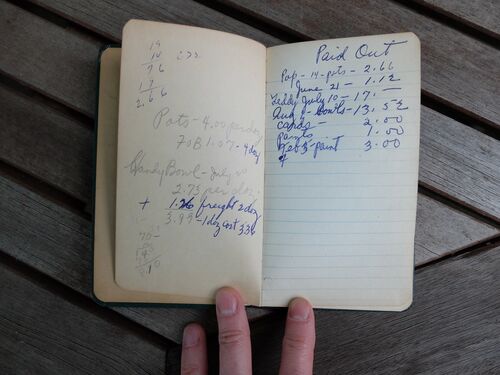 19
14
76
19
2.66
Pots - 4.00 per doz
FOB 1.07 - 4 doz
Candy Bowl - July
2.73 per doz.
+ 1.26 freight 2 doz
3.99 - 1 doz cost 33¢
70
Paid Out
Pop - 14 - pots - 2.66
June 21 - 1.12
Teddy July 10 - 17. —
Aug 8 - bowls - 13.52
cards - 2.00
paints 1.00
Feb 3 - paint 3.00